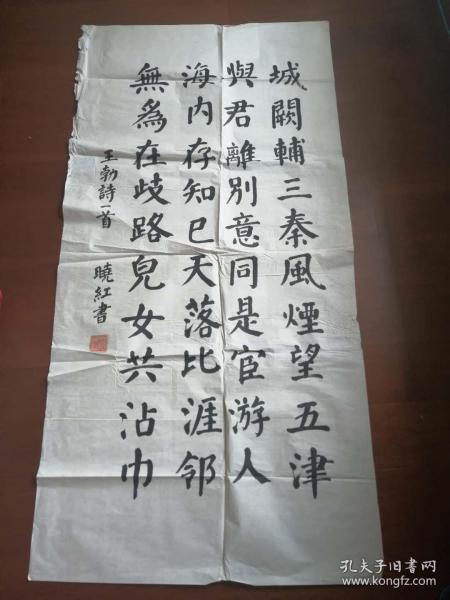 城闕輔三秦風煙望五津
與君離別意同是宦游人
海内存知巳天落比涯邻
無為在歧路兒女共沾巾
王勃詩一首 曉紅書
孔夫子旧书网
www.kongfz.com